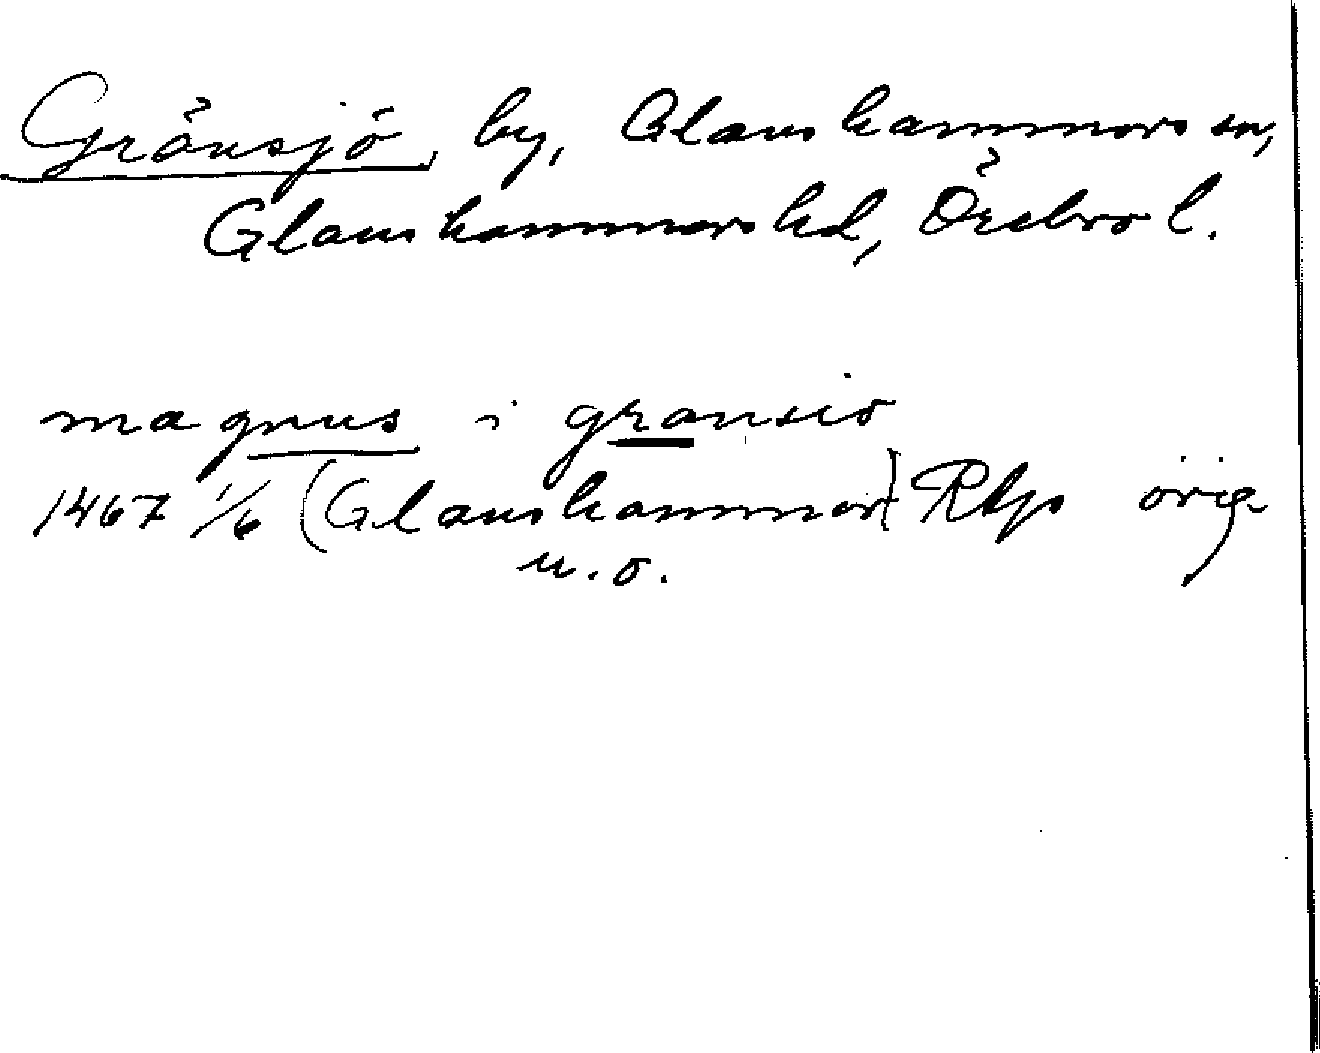 Gränsjö, by, Glanshammars sn,
Glanshammars hd, Örebro l.
magnus i gransio
1467 1/6 (Glanshammar) Rhp orig
u. o.